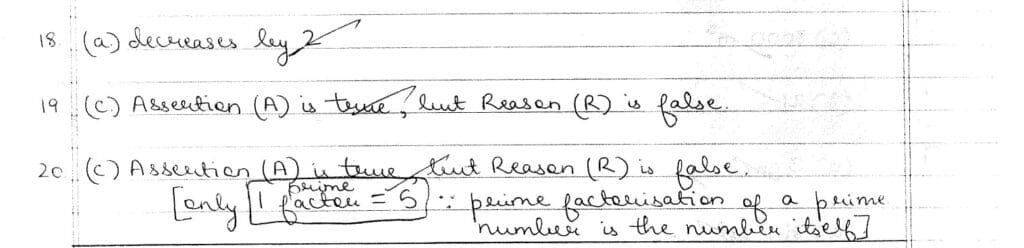 18 (a) decreases by 2
19 (C) Assertion (A) is true, but Reason (R) is false.
20 (C) Assertion (A) is true, but Reason (R) is false.
[only 1 prime factor = 5 ∵ prime factorisation of a prime
number is the number itself]